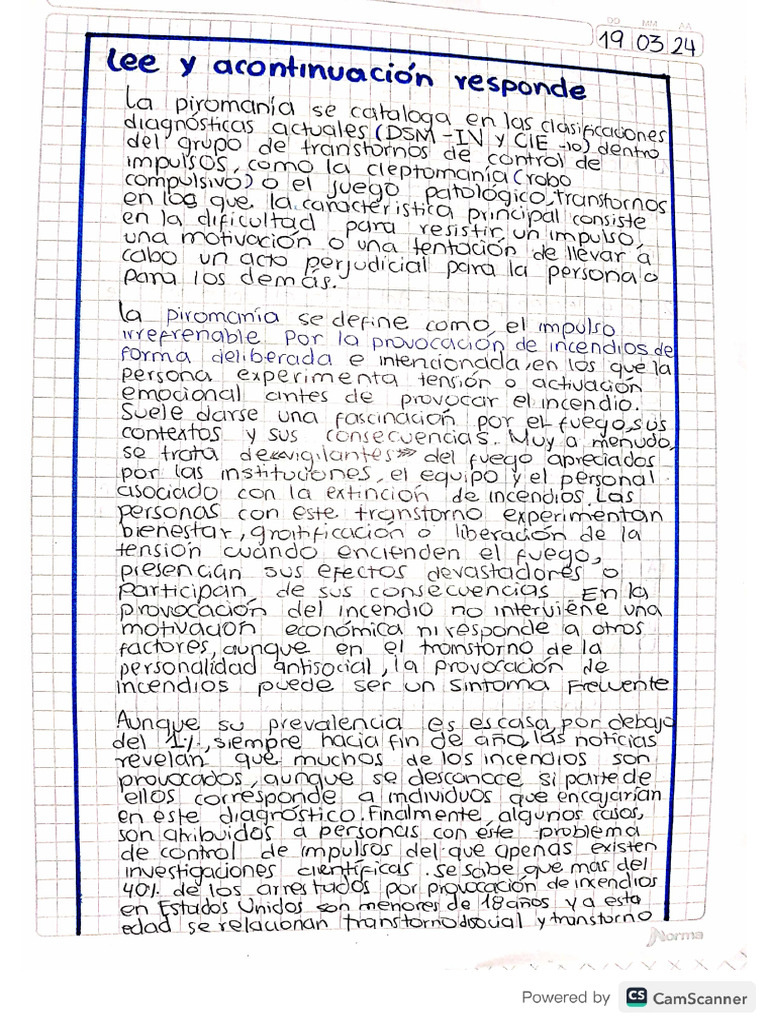 DD MM AA
19 03 24
Lee y acontinuación responde
La piromanía se cataloga en las clasificaciones
diagnósticas actuales (DSM-IV y CIE-10) dentro
del grupo de transtornos de control de
impulsos, como la cleptomanía (robo
compulsivo) o el juego patológico, transtornos
en los que la característica principal consiste
en la dificultad para resistir un impulso,
una motivación o una tentación de llevar a
cabo un acto perjudicial para la persona o
para los demás.
La piromanía se define como el impulso
irrefrenable por la provocación de incendios de
forma deliberada e intencionada, en los que la
persona experimenta tensión o activación
emocional antes de provocar el incendio.
Suele darse una fascinación por el fuego, sus
contextos y sus consecuencias. Muy a menudo,
se trata de «vigilantes» del fuego apreciados
por las instituciones, el equipo y el personal
asociado con la extinción de incendios. Las
personas con este transtorno experimentan
bienestar, gratificación o liberación de la
tensión cuando encienden el fuego,
presencian sus efectos devastadores o
participan de sus consecuencias. En la
provocación del incendio no interviene una
motivación económica ni responde a otros
factores, aunque en el transtorno de la
personalidad antisocial, la provocación de
incendios puede ser un sintoma Frecuente
Aunque su prevalencia es escasa, por debajo
del 1%, siempre hacia fin de año, las noticias
revelan que muchos de los incendios son
provocados, aunque se desconoce si parte de
ellos corresponde a individuos que encajarían
en este diagróstico. Finalmente, algunos casos,
son atribuidos a personas con este problema
de control de impulsos del que apenas existen
investigaciones científicas. se sabe que mas del
40% de los arrestados por provocación de inxendios
en Estados Unidos son menores de 18 años y a esta
edad se relacionan transtorno dsocial y transtorno
Norma
Powered by CS CamScanner